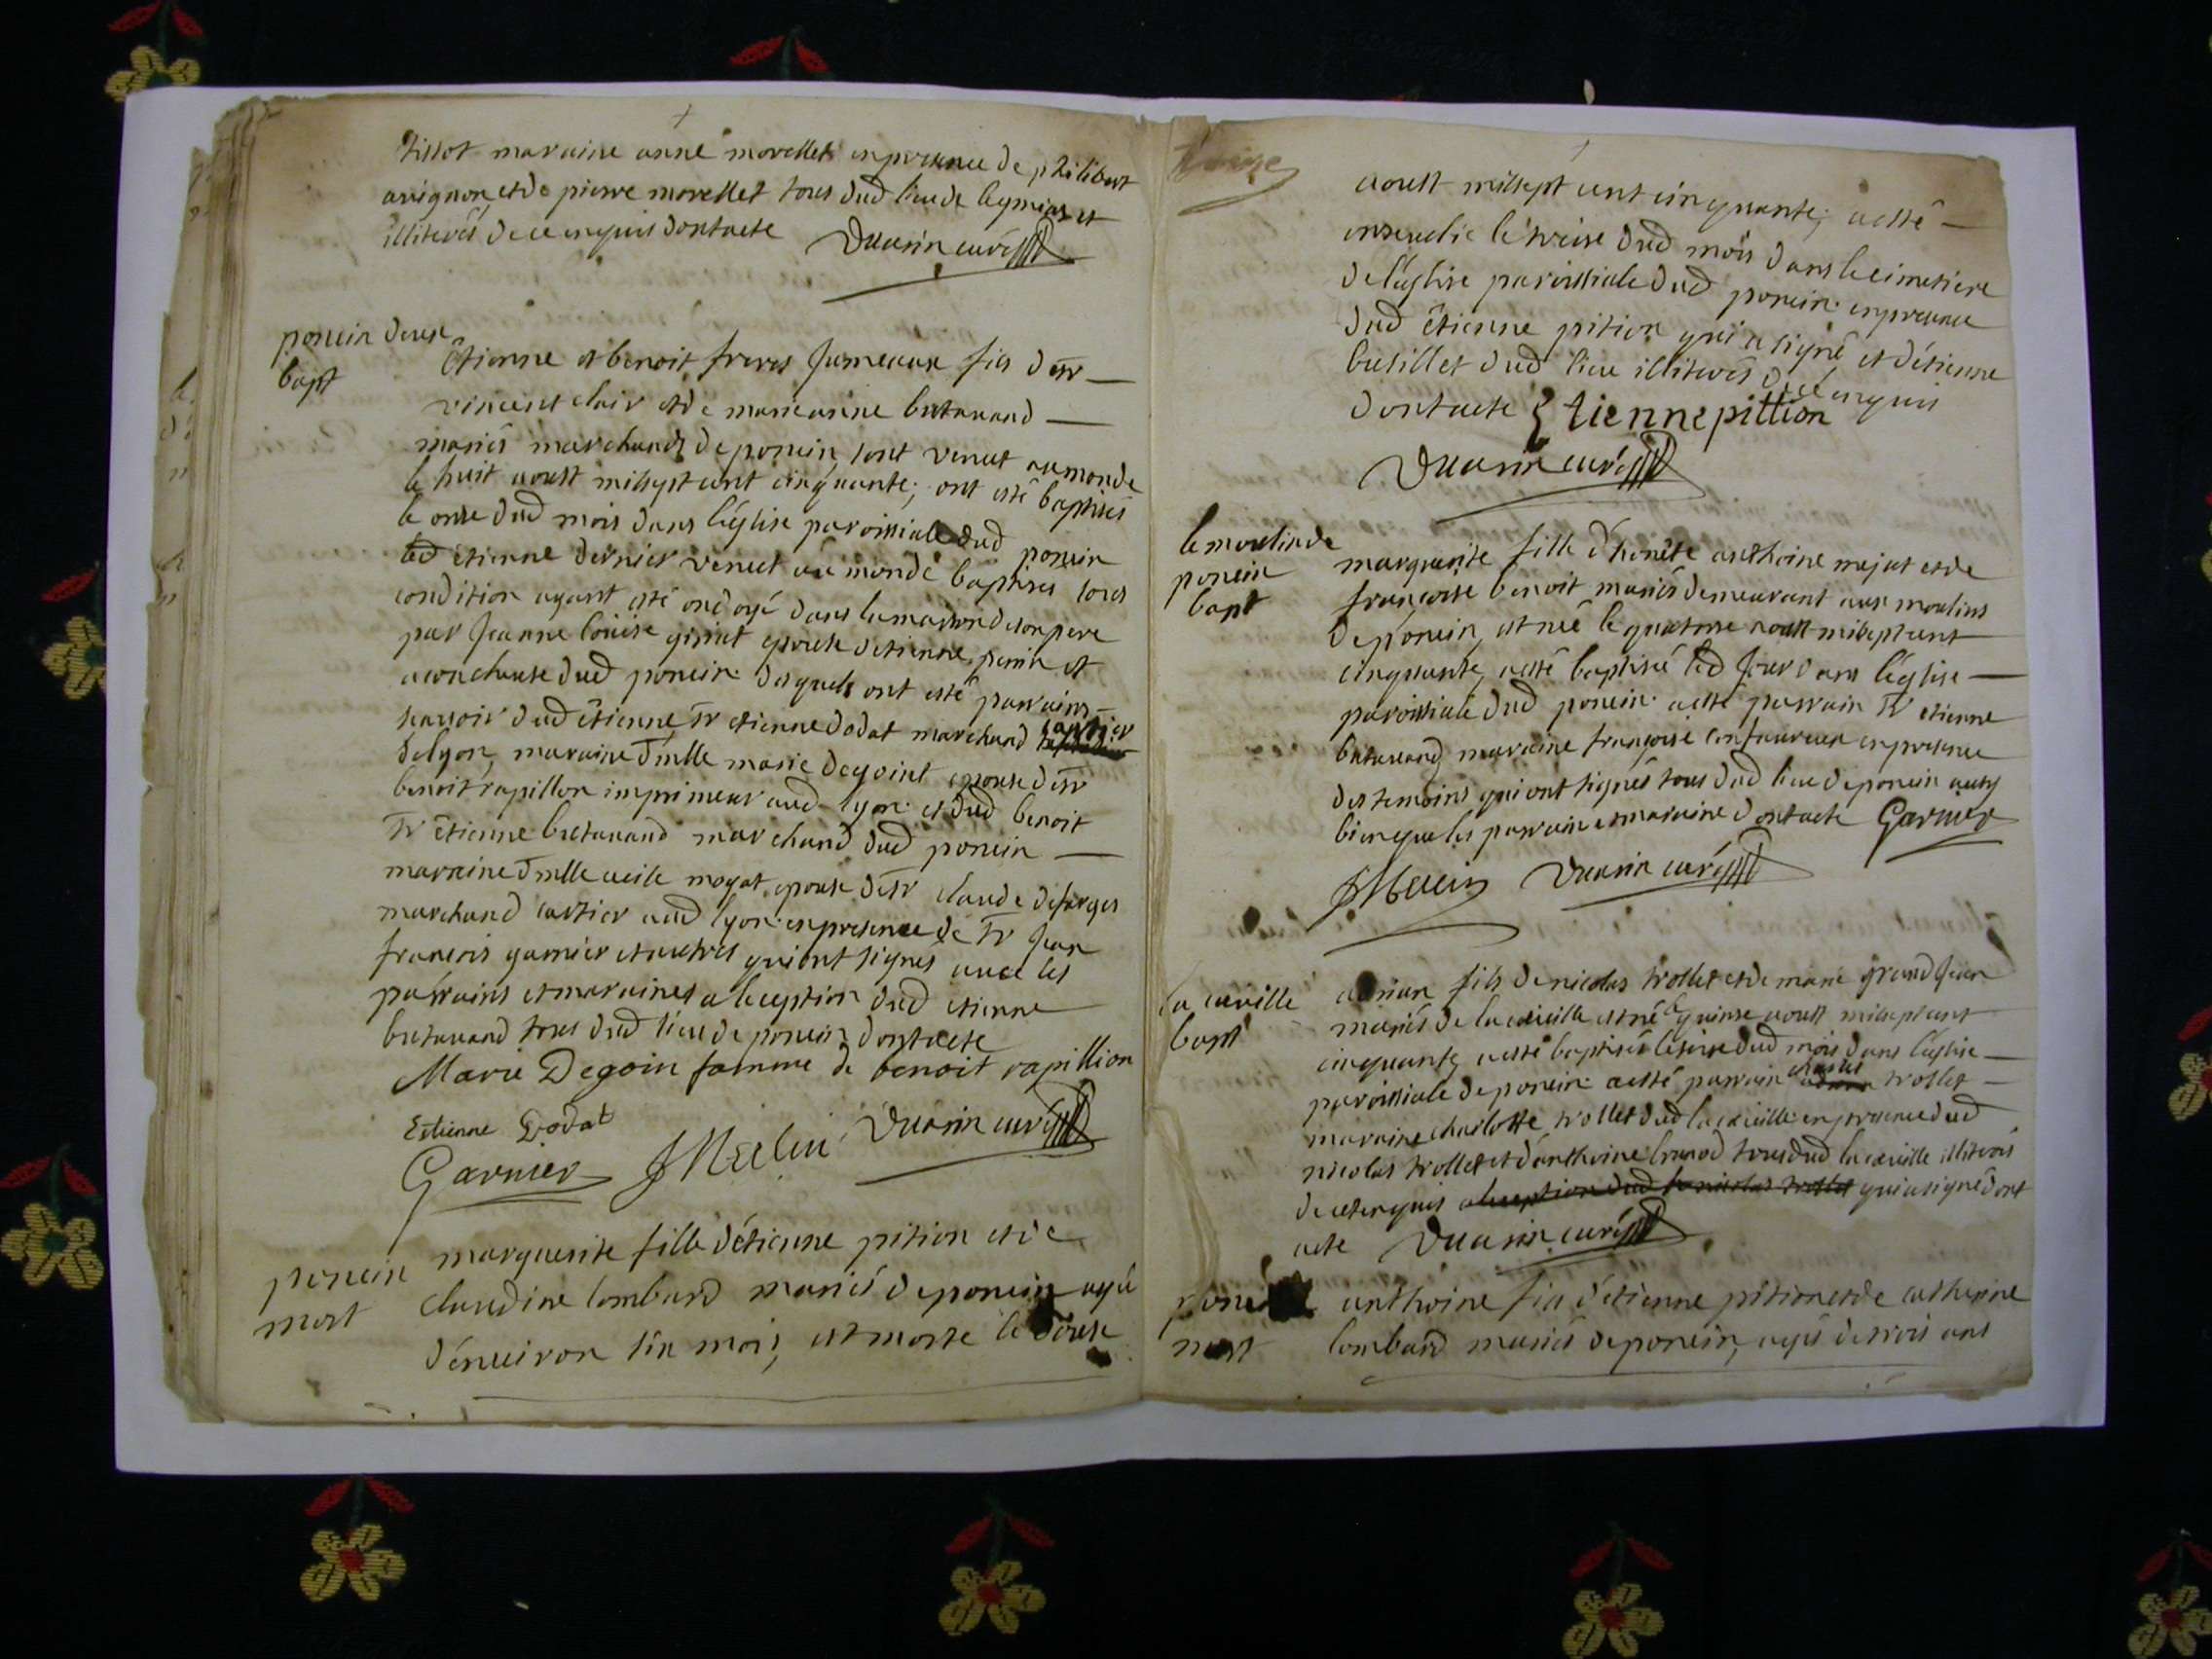 tissot maraine anne morellet en presence de philibert
avignon, et de pierre morellet tous dud lieu de leymiat et
illiterés de ce enquis dont acte Duasin curé
poncin deux
bapt
étienne et benoit freres jumeaux fils de sr
vincent clair et de marie anne bretanand
mariés marchands de poncin, sont venut au monde
le huit aoust mil sept cent cinquante; ont esté baptisés
le onze dud mois dans l'église paroissiale dud poncin
led étienne dernier venut au monde baptisés sous
condition ayant esté ondoyé dans la maison de son pere
par jeanne loüise epouse d'etienne perin et
acoucheuse dud poncin. desquels ont esté parrains
scavoir dud étienne, sr etienne dodat marchand cartier
de lyon, maraine d'mlle marie degoint epouse de sr
benoit rapillon imprimeur aud lyon. et dud benoit
sr étienne bretanand marchand dud poncin
marraine d'mlle magat epouse de sr claude deforges
marchand cartier aud lyon. en presence de sr jean
francois garnier et autres qui ont signés avec les
parrains et maraines a lexeption dud etienne
bretanand tous dud lieu de poncin dont acte
Marie Degoin famme de benoit rapillion
Estienne Dodat
Garnier JMerlin Duasin curé
poncin
mort
marguerite fille d'étienne pition et de
claudine lombard mariés de poncin agée
d'enuiron un mois, est morte le douse
aoust mil sept cent cinquante; a esté
enseuelie le treise dud mois dans le cimetiere
de l'église paroissiale dud poncin. en presence
dud étienne pition qui a signé et d'étienne
busillet dud lieu illiterés de ce enquis
dont acte Etienne pittion
Duasin curé
le moulin de
poncin
bapt
marguerite fille d'honête anthoine mejat et de
françoise benoit mariés demeurant aux moulins
de poncin, est née le quatorse aoust mil sept cent
cinquante, a esté baptisée led jour dans l'église
paroissiale dud poncin. a esté parrain sr etienne
bretanand, maraine françoise en presence
des temoins qui ont signés tous dud lieu de poncin aussy
bien que les parrain et maraine dont acte Garnier
JMerlin Duasin curé
la cueille
bapt
fils de nicolas trollet et de marie grand jean
mariés de la cueille est né le quinse aoust mil sept cent
cinquante, a esté baptisé le seise dud mois dans l'église
paroissiale de poncin. a esté parrain trollet
maraine charlotte trollet dud la cueille en presence dud
nicolas trollet et d'anthoine tous dud la cueille illiterés
de ce enquis a lexeption dud nicolas trollet qui a signé dont
acte Duasin curé
poncin
mort
anthoine fils d'étienne pition et de catherine
lombard mariés de poncin, agé de trois ans